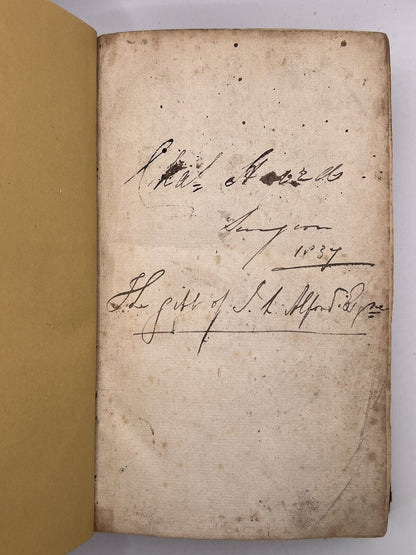 Chas
Surgeon
1837
The gift of J. A. Alford Esqre